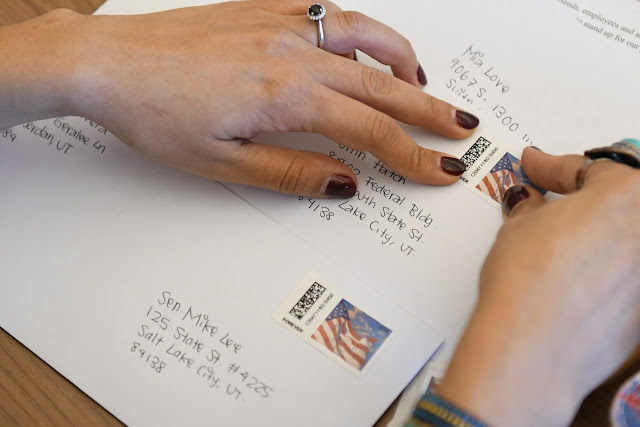 ends, employees and a
stand up for our
Mia Love
9067 S. 1300
Geralee Ln
Jordan, UT
Hatch
Federal Bldg.
State St.
Lake City, UT
84138
FOREVER
Sen Mike Lee
125 State St #4225
Salt Lake City, UT.
84138
FOREVER